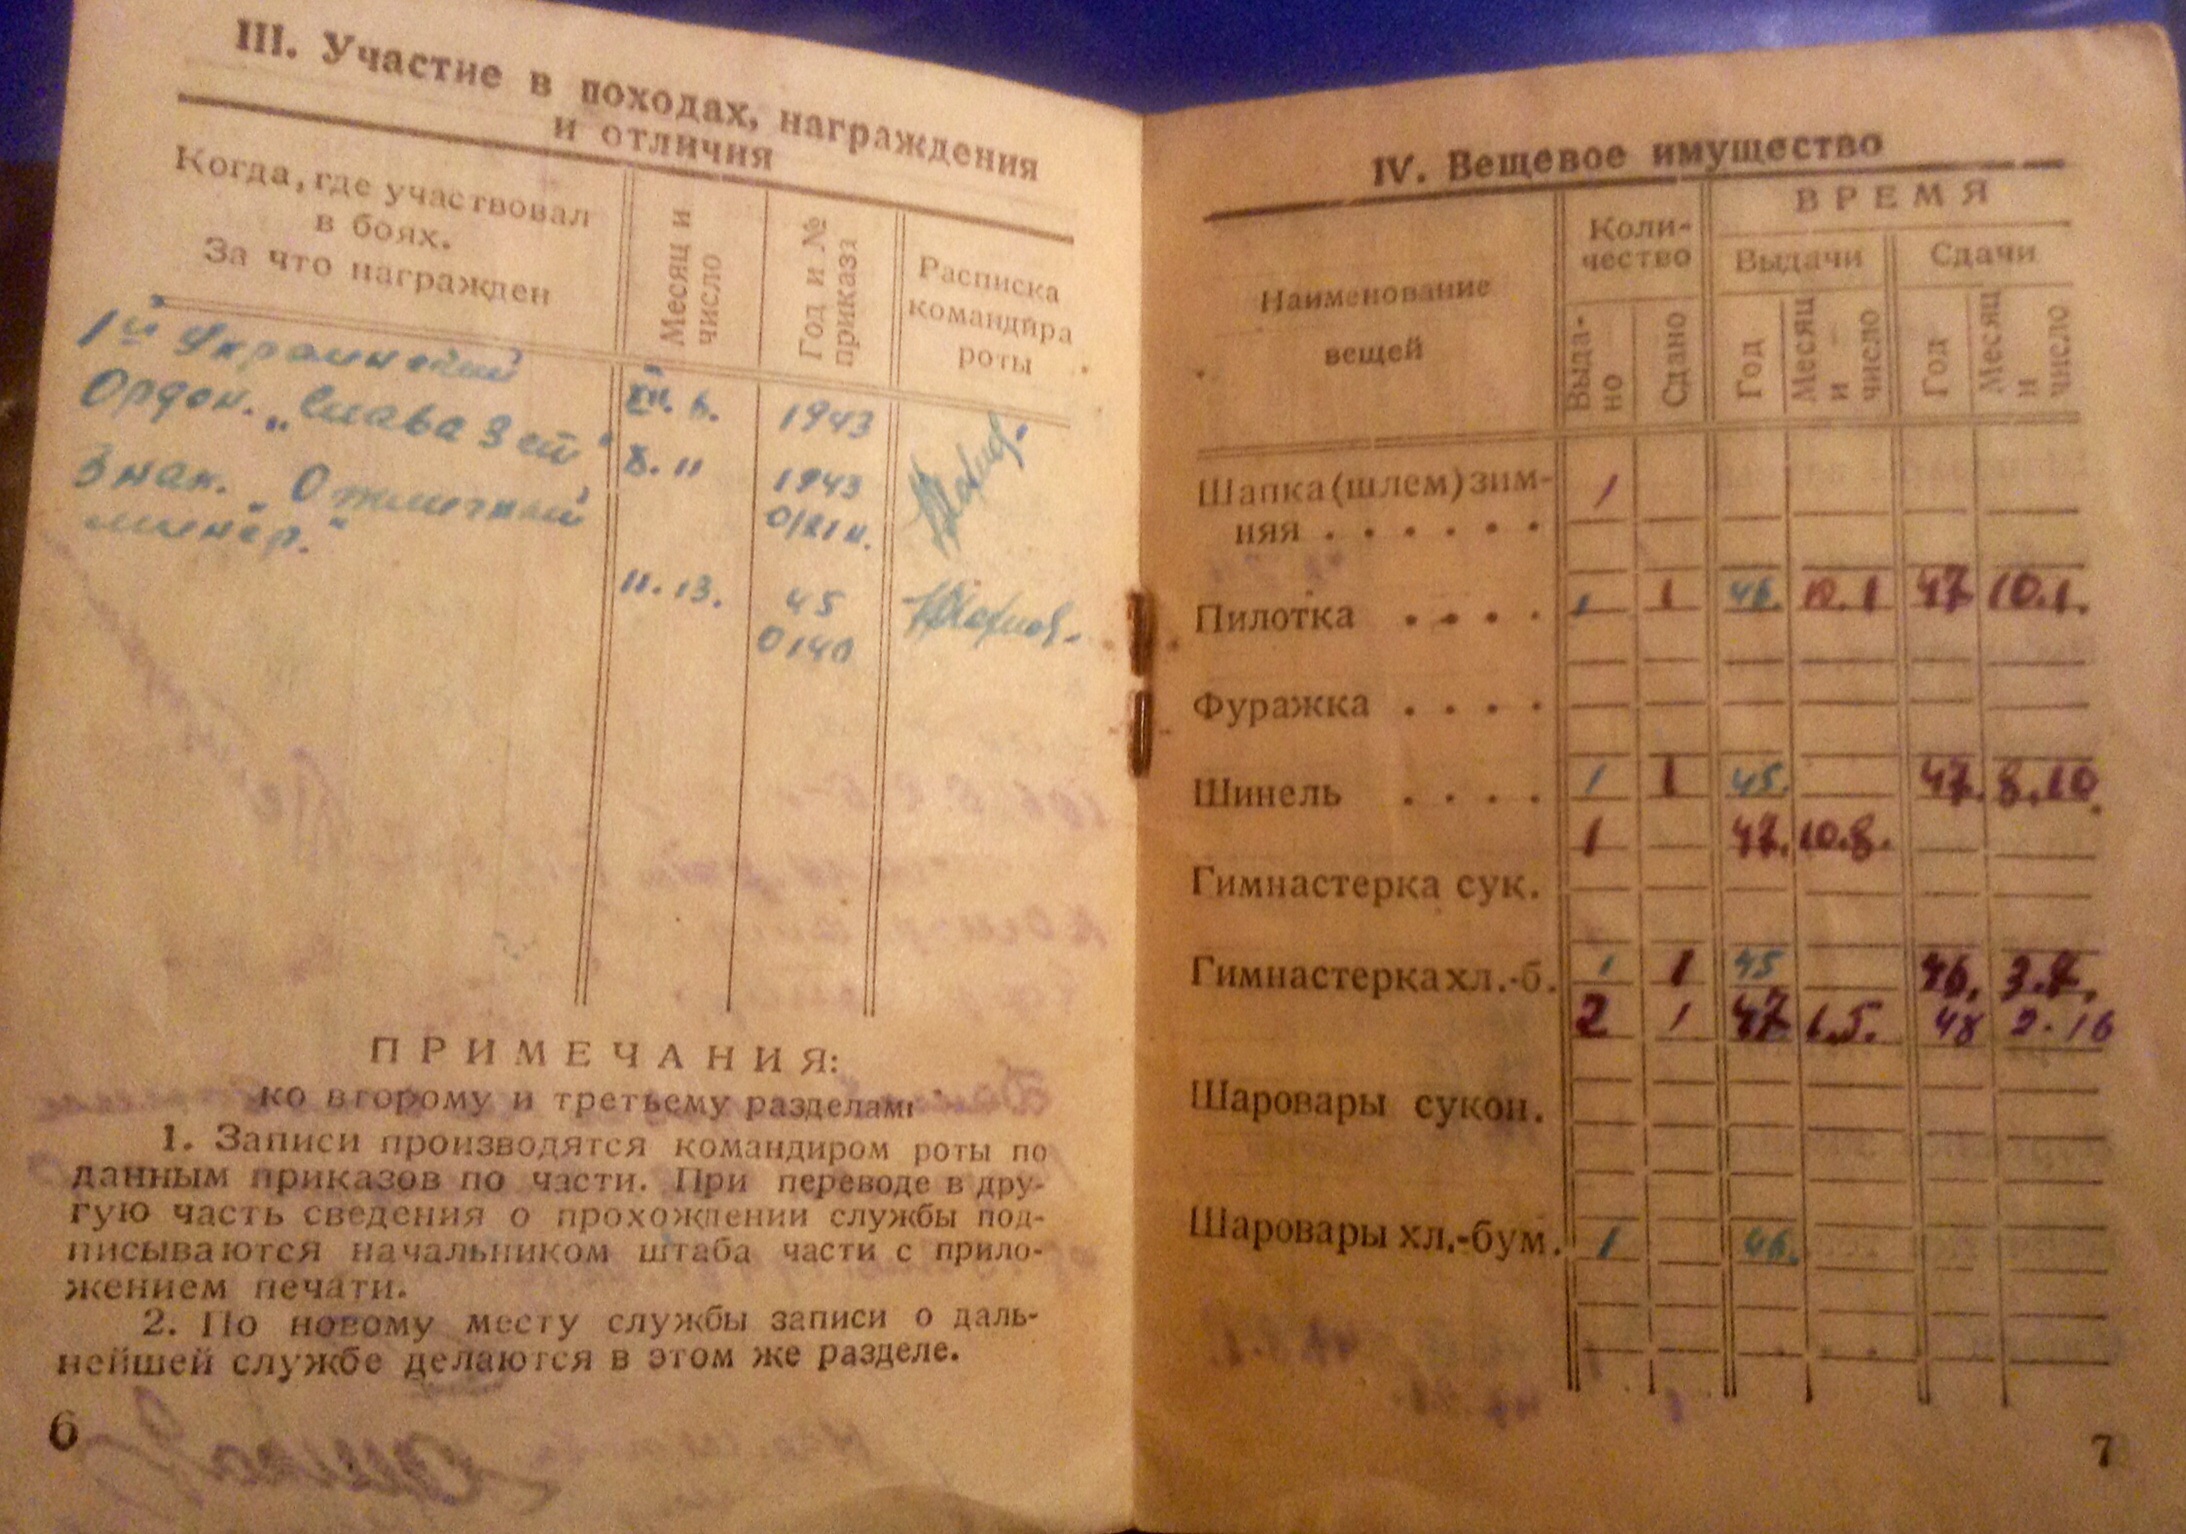 III. Участие в походах, награждения
и отличия
Когда, где участвовал
в боях.
За что награжден
Месяц и
число
Год и №
приказа
Расписка
командира
роты
1й Украинский
XII. 6.
1943
Орден. „Слава 3 ст"
X. 11
1943
Знак. „Отличный
минёр."
11. 13.
45
0140
ПРИМЕЧАНИЯ:
ко второму и третьему разделам:
1. Записи производятся командиром роты по
данным приказов по части. При переводе в дру-
гую часть сведения о прохождении службы под-
писываются начальником штаба части с прило-
жением печати.
2. По новому месту службы записи о даль-
нейшей службе делаются в этом же разделе.
6
IV. Вещевое имущество
Наименование
вещей
Коли-
чество
ВРЕМЯ
Выдачи
Сдачи
Выда-
но
Сдано
Год
Месяц
и
число
Год
Месяц
и
число
Шапка (шлем) зим-
няя . . . . . . 1
Пилотка . . . . 1 1 46. 10.1 47 10.1.
Фуражка . . . .
Шинель . . . . 1 1 45. 47. 8.10.
1 47. 10.8.
Гимнастерка сук.
Гимнастерка хл.-б. 1 1 45 46. 3.7.
2 1 47 1.5. 48 2.16
Шаровары сукон.
Шаровары хл.-бум. 1 46.
7